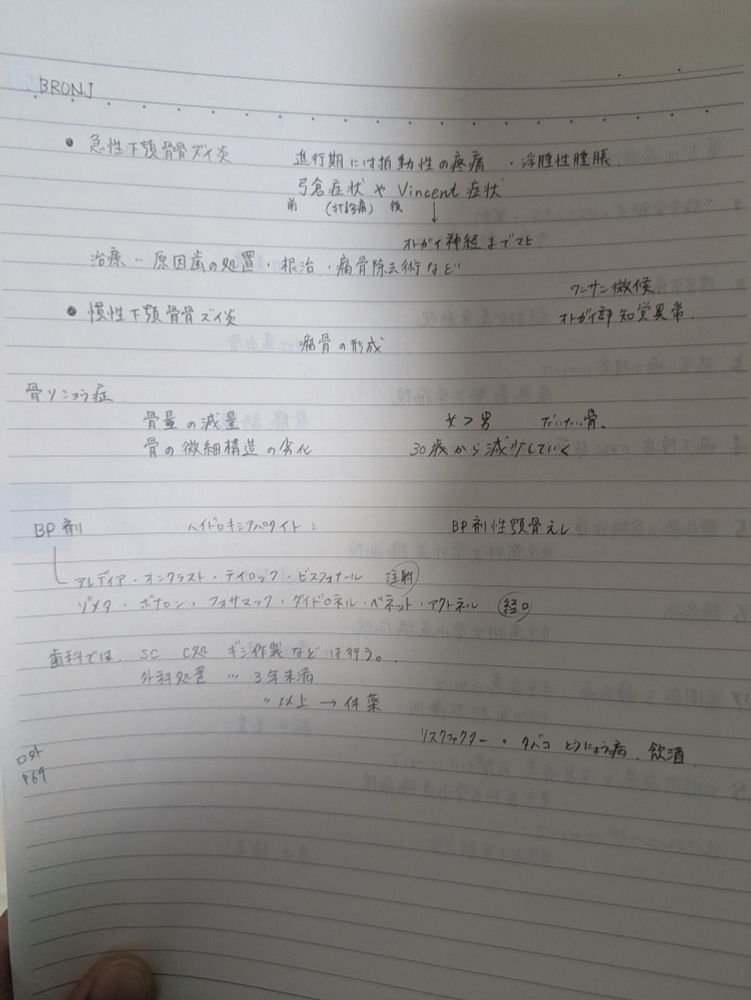 BRONJ
• 急性下顎骨骨ズイ炎 進行期には拍動性の疼痛 ・浮腫性腫脹
弓倉症状 や Vincent 症状
前 (打診痛) 後 ↓
オトガイ神経までマヒ
治療 … 原因歯の処置・根治・腐骨除去術など
ワンサン徴候
• 慢性下顎骨骨ズイ炎 オトガイ部 知覚異常.
腐骨の形成
骨ソショウ症
骨量の減量 女 > 男 だいたい骨、
骨の微細構造の劣化 30歳から減少していく
BP剤 ハイドロキシアパタイト: BP剤性顎骨えし
アレディア・オンクラスト・テイロック・ビスフォナール 注射
ゾメタ・ボナロン・フォサマック・ダイドロネル・ベネット・アクトネル 経口
歯科では SC C処 ギシ作製などは行う。
外科処置 … 3年未満
〃 以上 → 休薬
リスクファクター ・ タバコ とうにょう病、飲酒
P69